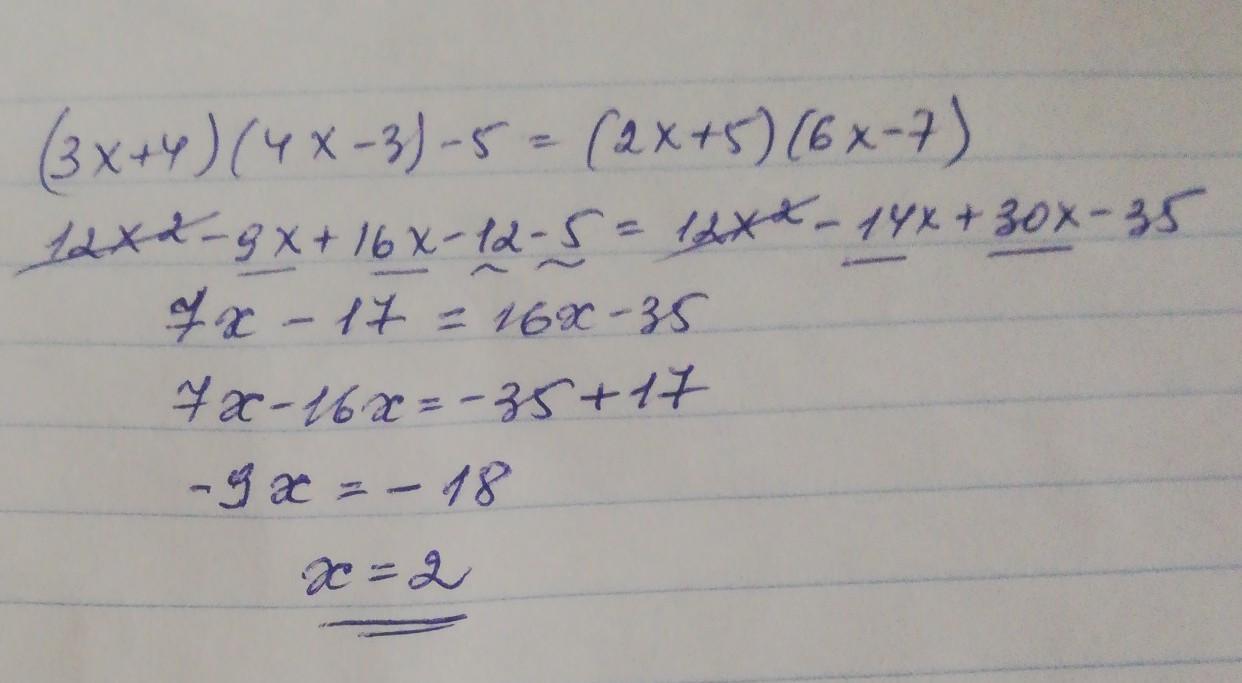 (3x+4)(4x-3)-5=(2x+5)(6x-7)
12x²-9x+16x-12-5=12x²-14x+30x-35
7x-17=16x-35
7x-16x=-35+17
-9x=-18
x=2